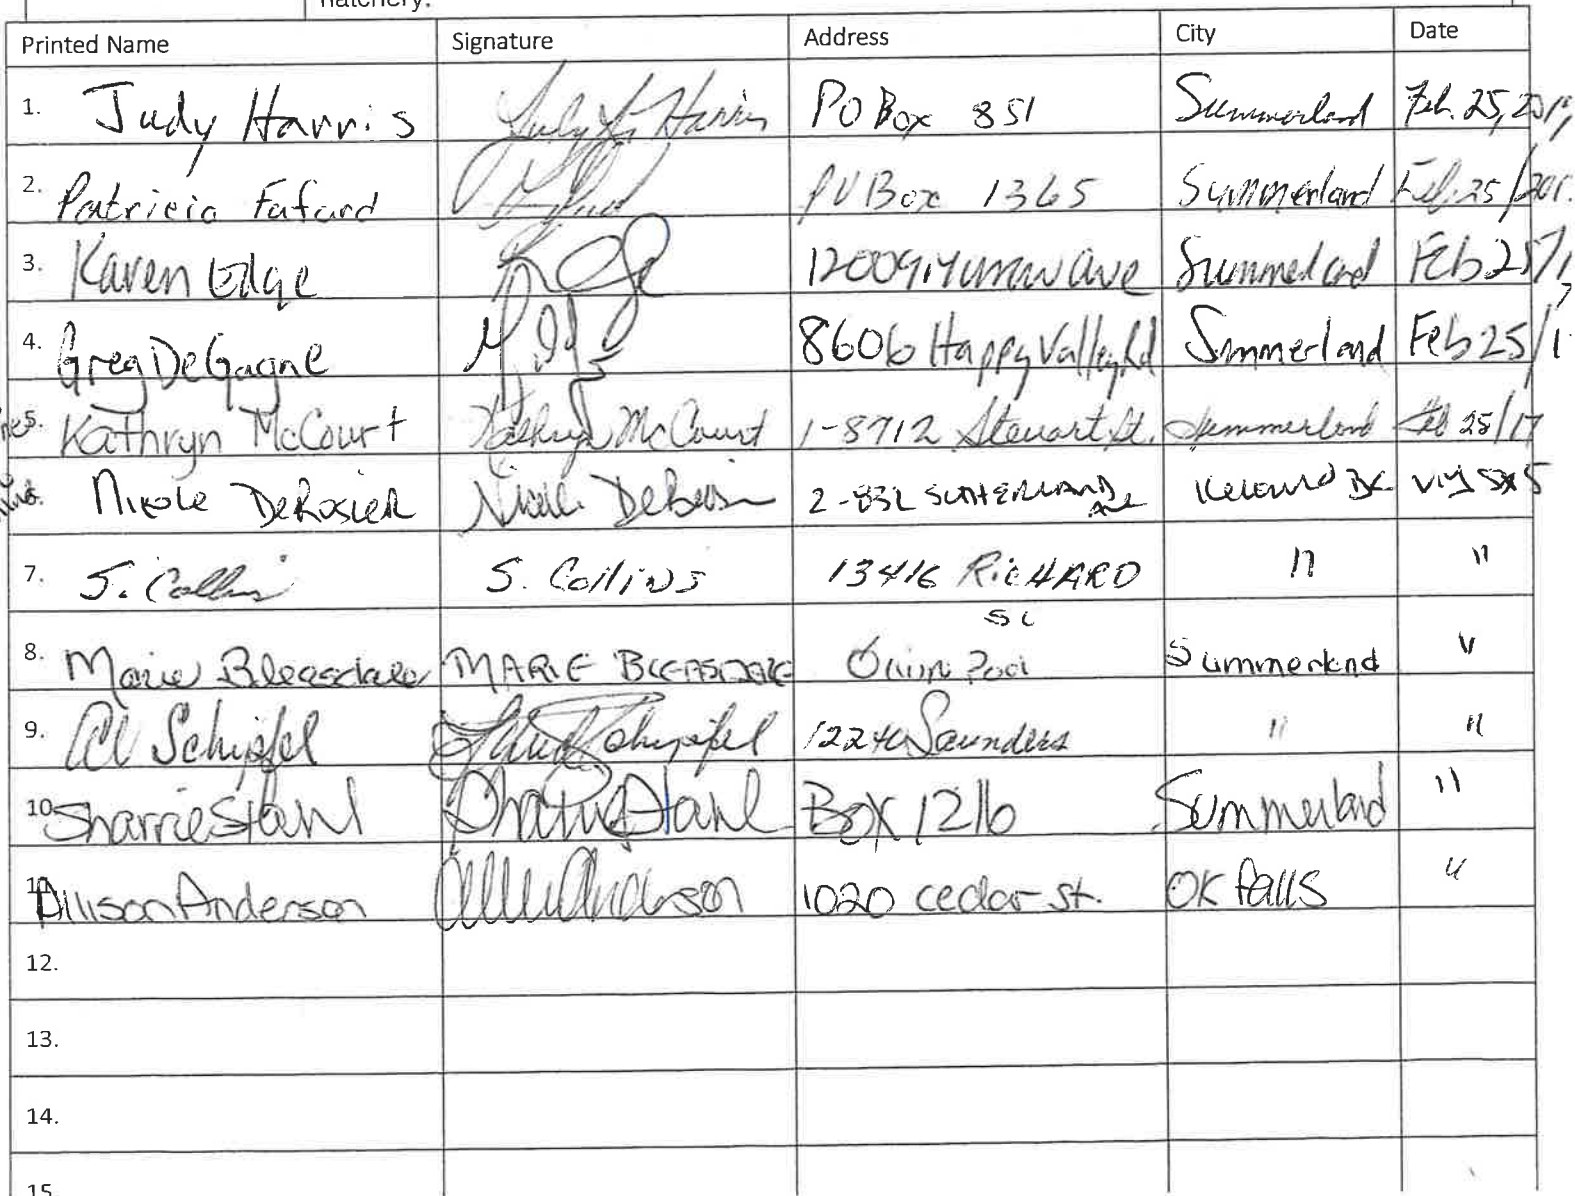 hatchery.
Printed Name Signature Address City Date
1. Judy Harris Judy Harris PO Box 851 Summerland Feb. 25, 201
2. Patricia Fafard PO Box 1365 Summerland Feb. 25/201
3. Karen Edge Ave Summerland Feb 25/1
4. Greg DeGagne 8606 Happy Valley Rd Summerland Feb 25/1
5. Kathryn McCourt Kathryn McCourt 1-8712 Steuart St. Summerland Feb 25/17
Nicole DeRosier Nicole DeRosier 2-832 SUTHERLAND Ave Kelowna BC V1Y 5X5
7. S. Collins S. Collins 13416 RICHARD ST " "
8. Marie Bleasdale MARIE BLEASDALE Summerland "
9. Al Schipfel Schipfel Saunders " "
10. Sharrie Stahl Sharrie Stahl Box 1216 Summerland "
11. Allison Anderson Anderson 1020 cedar st. OK falls "
12.
13.
14.
15.